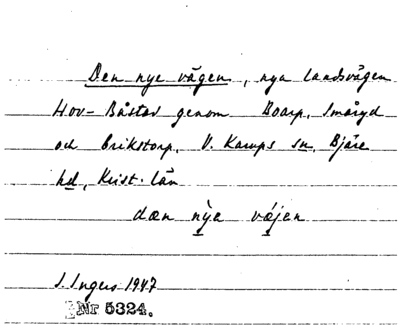 Den nye vägen, nya landsvägen
Hov-Båstad genom Boarp, Småryd
och Erikstorp, V. Karups sn, Bjäre
hd, Krist. län
dæn nye væjen
I. Ingers 1947
Nr 5324.